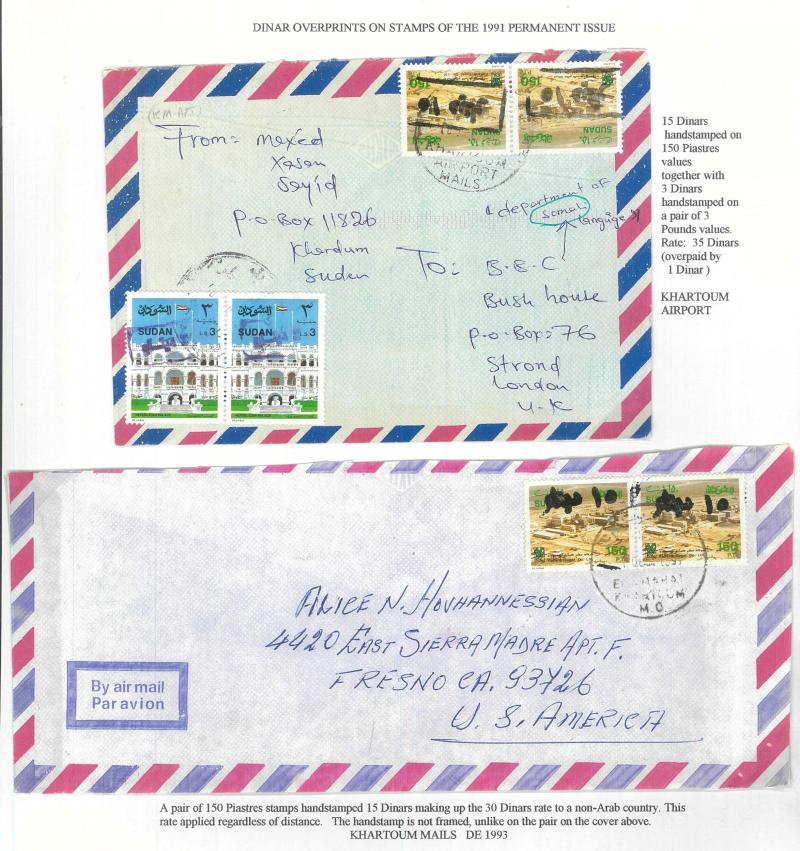 DINAR OVERPRINTS ON STAMPS OF THE 1991 PERMANENT ISSUE
(KM-APS)
From: mexed
Xasan
Sayid
P.O-BOX 11826
Khardum
Sudan
150
150
SUDAN
SUDAN
AIRPORT
MAILS
department of
Somali
language
To:
B.B.C
Bush house
P.O-Box: 76
Strond
London
U.K
السودان ٣
السودان ٣
SUDAN £S 3
SUDAN £S 3
15 Dinars
handstamped on
150 Piastres
values
together with
3 Dinars
handstamped on
a pair of 3
Pounds values.
Rate: 35 Dinars
(overpaid by
1 Dinar )
KHARTOUM
AIRPORT
١٥
١٥
150
150
KHARTOUM
M.O.
ALICE N. HOVHANNESSIAN
4420 EAST SIERRA MADRE APT. F.
FRESNO CA. 93726
U. S. AMERICA
By air mail
Par avion
A pair of 150 Piastres stamps handstamped 15 Dinars making up the 30 Dinars rate to a non-Arab country. This
rate applied regardless of distance. The handstamp is not framed, unlike on the pair on the cover above.
KHARTOUM MAILS DE 1993